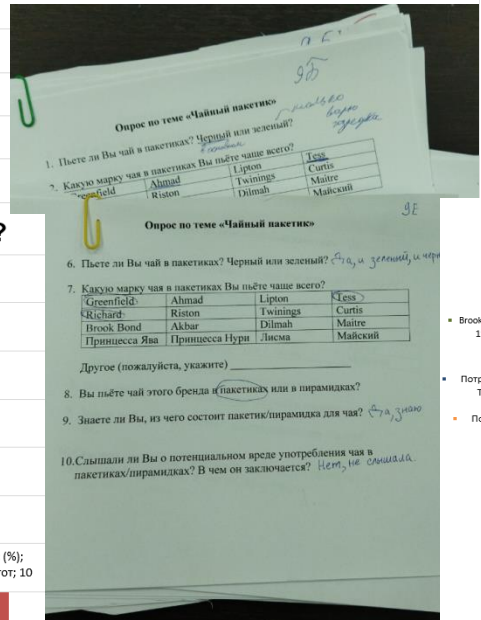 9Б
Опрос по теме «Чайный пакетик»
только
варю
изредка
1. Пьете ли Вы чай в пакетиках? Черный или зеленый?
в основном
2. Какую марку чая в пакетиках Вы пьёте чаще всего?
Greenfield Ahmad Lipton Tess
Riston Twinings Curtis
Dilmah Maitre
Майский
9Е
Опрос по теме «Чайный пакетик»
6. Пьете ли Вы чай в пакетиках? Черный или зеленый? Да, и зеленый, и черн
7. Какую марку чая в пакетиках Вы пьёте чаще всего?
Greenfield Ahmad Lipton Tess
Richard Riston Twinings Curtis
Brook Bond Akbar Dilmah Maitre
Принцесса Ява Принцесса Нури Лисма Майский
Другое (пожалуйста, укажите)
8. Вы пьёте чай этого бренда в пакетиках или в пирамидках?
9. Знаете ли Вы, из чего состоит пакетик/пирамидка для чая? Да, знаю
10.Слышали ли Вы о потенциальном вреде употребления чая в
пакетиках/пирамидках? В чем он заключается? Нет, не слышала.
?
Brook
1
Потр
Т
По
(%);
гот; 10